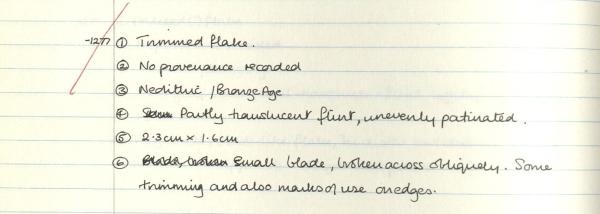 -1277 ① Trimmed flake.
② No provenance recorded
③ Neolithic / Bronze Age
④ Partly translucent flint, unevenly patinated.
⑤ 2.3cm x 1.6cm
⑥ Small blade, broken across obliquely. Some
trimming and also marks of use on edges.